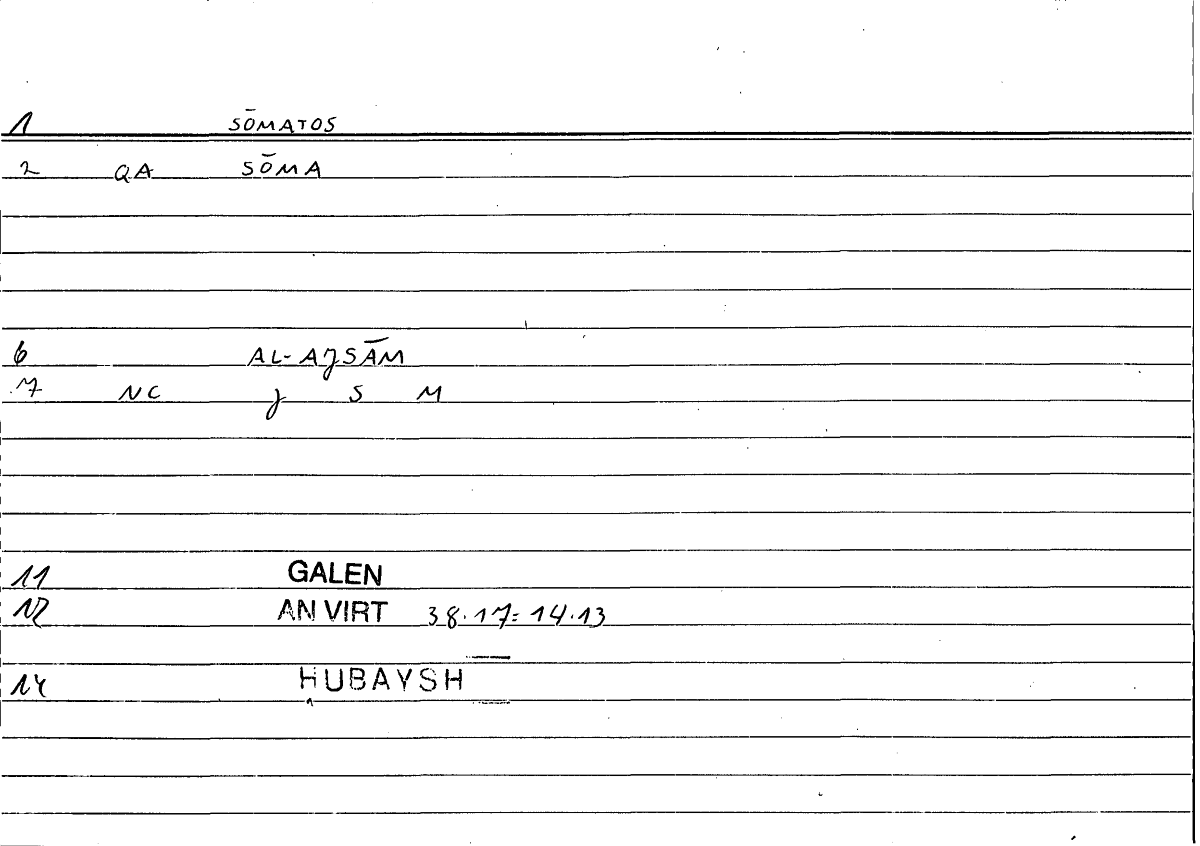 1 SŌMATOS
2 QA SŌMA
6 AL-AJSĀM
7 NC J S M
11 GALEN
12 AN VIRT 38.17=14.13
14 ḤUBAYSH